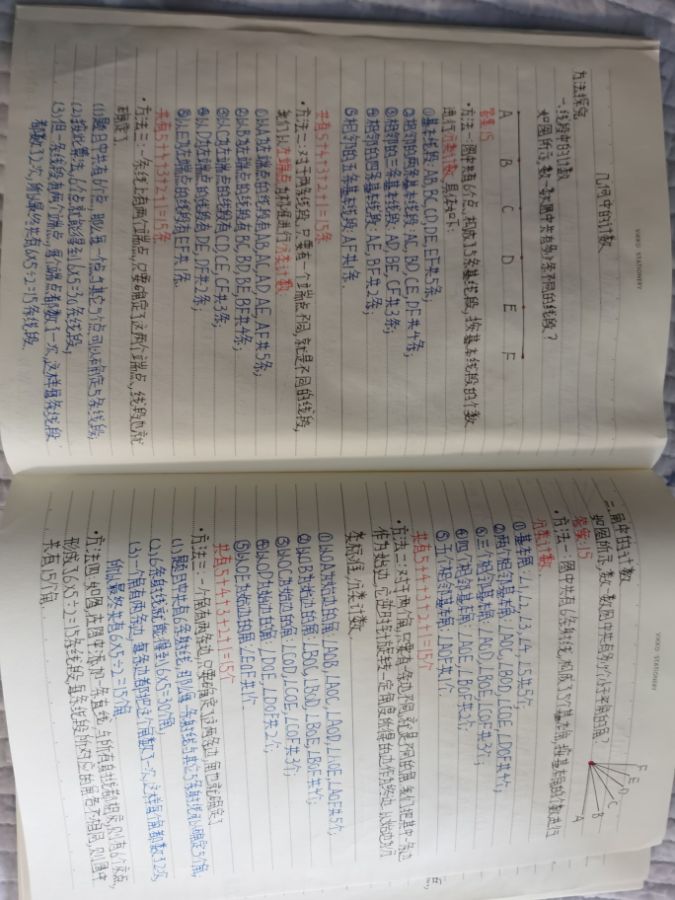 VARIO STATIONERY
几何中的计数
方法探究
一、线段中的计数
如图所示,数一数图中共有多少条不同的线段?
A B C D E F
答案:15
·方法一:图中共有6个点,构成了5条基本线段,按基本线段的个数
进行分类计数,具体如下:
①基本线段:AB,BC,CD,DE,EF共5条;
②相邻的两条基本线段:AC,BD,CE,DF共4条;
③相邻的三条基本线段:AD,BE,CF共3条;
④相邻的四条基本线段:AE,BF共2条;
⑤相邻的五条基本线段:AF共1条.
共有5+4+3+2+1=15条
·方法二:对于两条线段,只要有一个端点不同,就是不同的线段,
我们以左端点为标准进行分类计数.
①以A为左端点的线段有AB,AC,AD,AE,AF共5条;
②以B为左端点的线段有BC,BD,BE,BF共4条;
③以C为左端点的线段有CD,CE,CF共3条;
④以D为左端点的线段有DE,DF共2条;
⑤以E为左端点的线段有EF共1条.
共有5+4+3+2+1=15条
·方法三:一条线上有两个端点,只要确定了这两个端点,线段也就
确定了.
(1)题目中共有6个点,那么每一个点与其它5个点可以确定5条线段;
(2)按此算法,6个点就能得到6×5=30条线段;
(3)但一条线段有两个端点,每个端点都数了一次,这样每条线段
都数了2次,所以最终共有6×5÷2=15条线段.
VARIO STATIONERY
二、角中的计数
如图所示,数一数图中共有多少个小于平角的角?
F E D C B A
答案:15
·方法一:图中共有6条射线,构成了5个基本角,按基本角的个数进行
分类计数.
①基本角:∠1,∠2,∠3,∠4,∠5共5个;
②两个相邻基本角:∠AOC,∠BOD,∠COE,∠DOF共4个;
③三个相邻基本角:∠AOD,∠BOE,∠COF共3个;
④四个相邻基本角:∠AOE,∠BOF共2个;
⑤五个相邻基本角:∠AOF共1个.
共有5+4+3+2+1=15个
·方法二:对于两个角,只要有一条边不同,就是不同的角,我们把其中一条边
作为始边,它逆时针旋转一定角度所得的边作为终边,以始边为分
类标准,分类计数.
①以OA为始边的角:∠AOB,∠AOC,∠AOD,∠AOE,∠AOF共5个;
②以OB为始边的角:∠BOC,∠BOD,∠BOE,∠BOF共4个;
③以OC为始边的角:∠COD,∠COE,∠COF共3个;
④以OD为始边的角:∠DOE,∠DOF共2个;
⑤以OE为始边的角:∠EOF共1个.
共有5+4+3+2+1=15个
·方法三:一个角有两条边,只要确定了这两条边,角也就确定了.
(1)题目中共有6条射线,那么每一条射线与其它5条射线可以确定5个角;
(2)6条射线就能得到6×5=30个角;
(3)一个角有两条边,每条边都把这个角数了一次,这样每个角都数了2次,
所以最终共有6×5÷2=15个角
·方法四:如图,在图中添加一条直线,与所有射线都相交,则有6个交点,
形成了6×5÷2=15条线段,每条线段所对应的角各不相同,则图中
共有15个角.